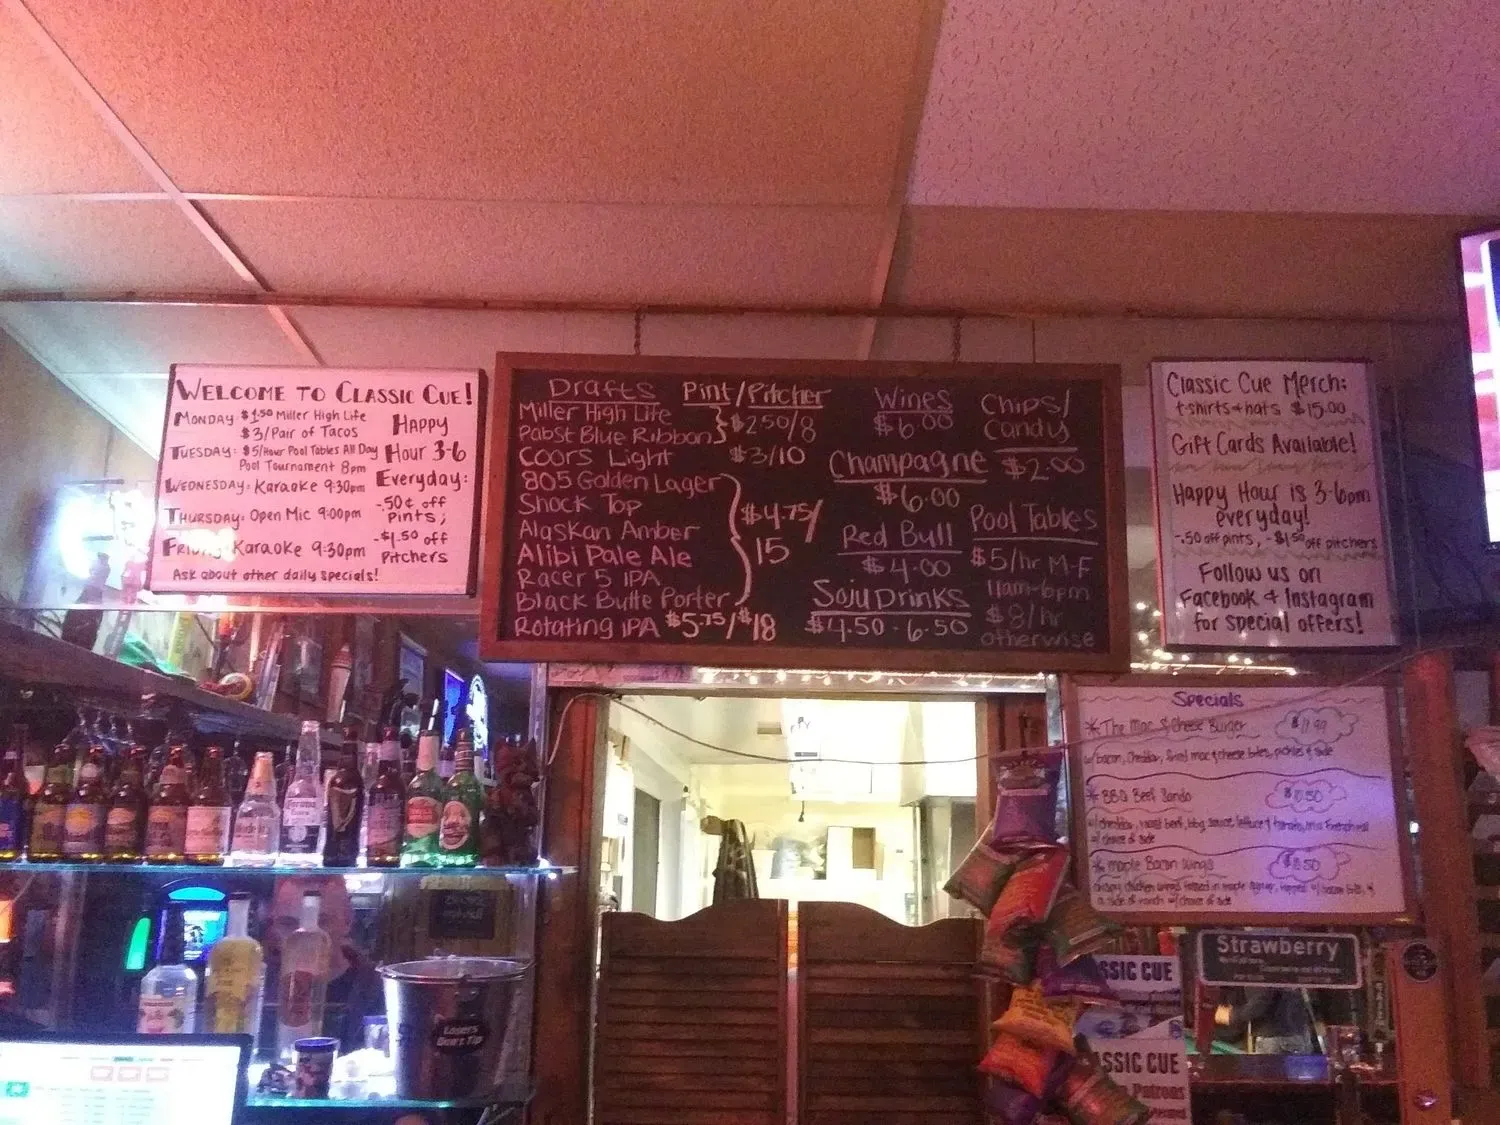 WELCOME TO CLASSIC CUE!
MONDAY: $1.50 Miller High Life
$3/Pair of Tacos
TUESDAY: $5/Hour Pool Tables All Day
Pool Tournament 8pm
WEDNESDAY: Karaoke 9:30pm
THURSDAY: Open Mic 9:00pm
FRIDAY: Karaoke 9:30pm
Ask about other daily specials!
Happy
Hour 3-6
Everyday:
-.50¢ off
pints;
-$1.50 off
Pitchers
Drafts Pint/Pitcher
Miller High Life
Pabst Blue Ribbon
$2.50/8
Coors Light $3/10
805 Golden Lager
Shock Top
Alaskan Amber
Alibi Pale Ale
Racer 5 IPA
Black Butte Porter
$4.75/
15
Rotating IPA $5.75/$18
Wines
$6.00
Champagne
$6.00
Red Bull
$4.00
Soju Drinks
$4.50 - 6.50
Chips/
Candy
$2.00
Pool Tables
$5/hr M-F
11am-6pm
$8/hr
otherwise
Classic Cue Merch:
t-shirts + hats $15.00
Gift Cards Available!
Happy Hour is 3-6pm
everyday!
-.50 off pints, -$1.50 off pitchers
Follow us on
Facebook & Instagram
for special offers!
Specials
* The Mac & Cheese Burger $11.99
w/ bacon, cheddar, fried mac & cheese bites, pickles & side
* BBQ Beef Sando $10.50
w/ cheddar, roast beef, bbq sauce, lettuce & tomato, on a French roll
w/ choice of side
* Maple Bacon Wings
crispy chicken wings tossed in maple syrup, topped w/ bacon bits, &
a side of ranch w/ choice of side
Strawberry
SSIC CUE
ASSIC CUE
Patrons
Corona
Losers
Don't Tip